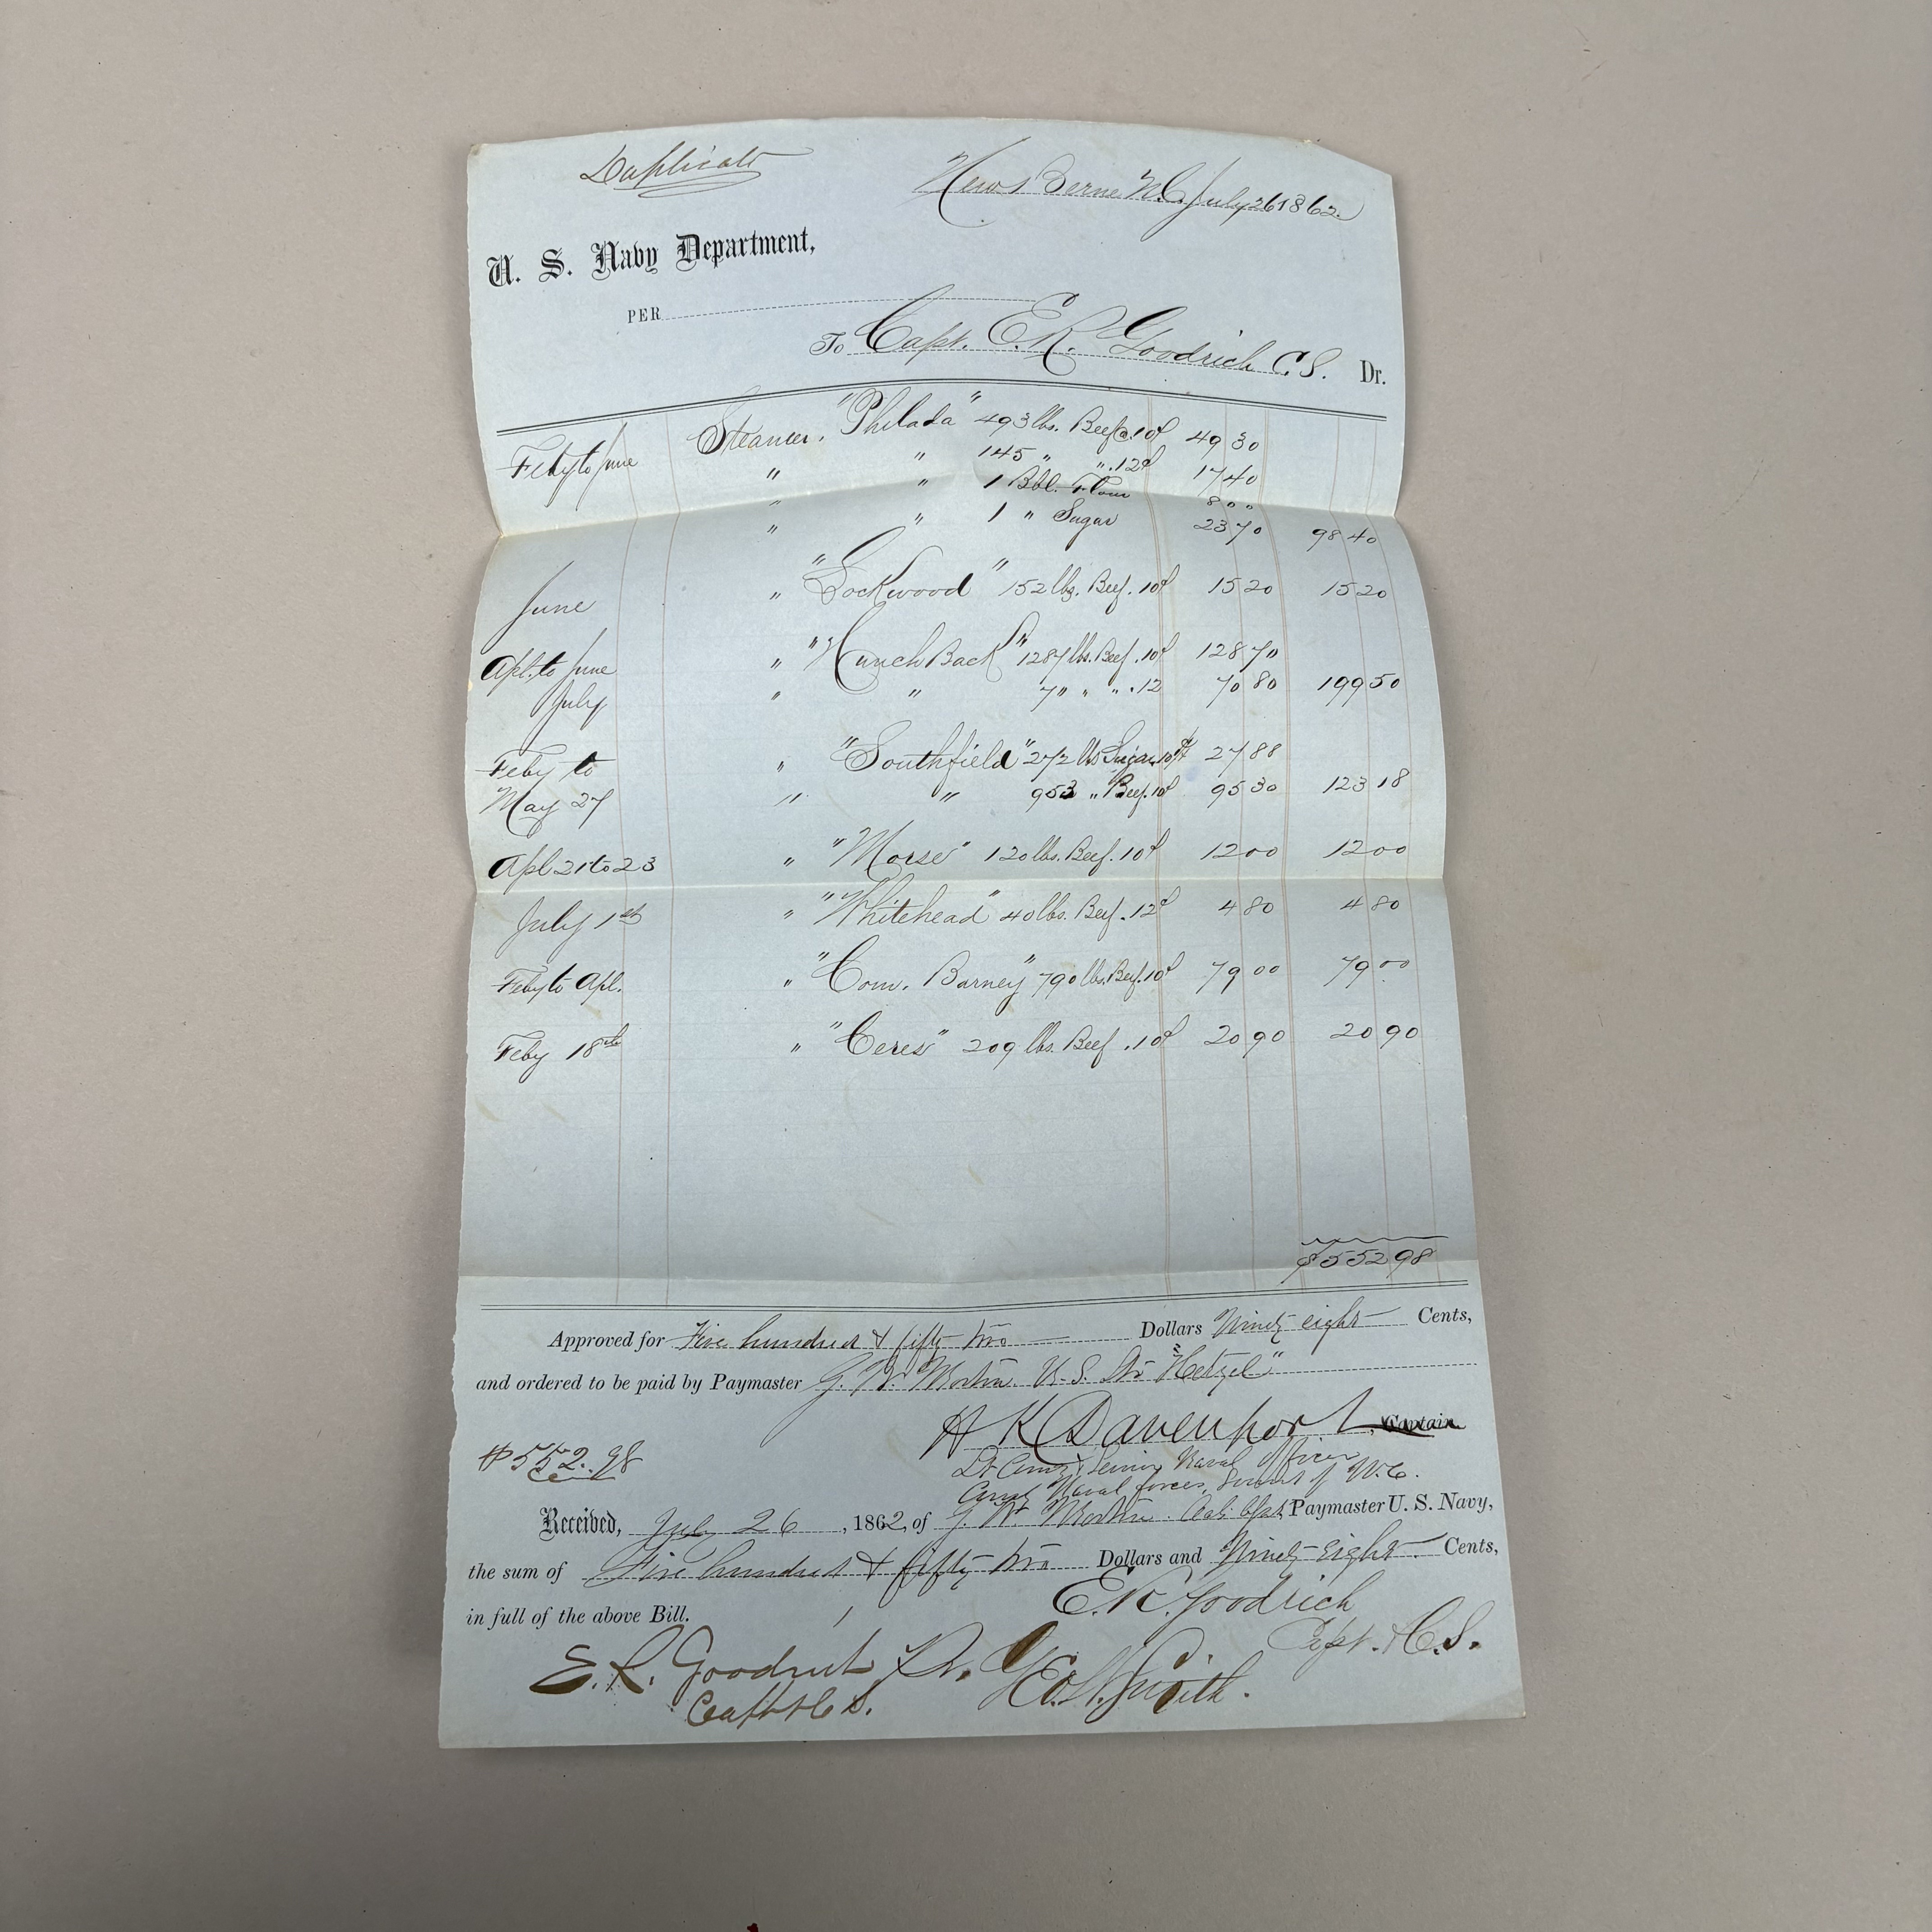 Duplicate
New Berne N.C. July 26 1862.
U. S. Navy Department,
PER
To Capt. E. R. Goodrich C.S. Dr.
Feby to June Steamer "Philada" 493 lbs. Beef @ 10¢ 49 30
" " 145 " " .12¢ 17 40
" " 1 Bbl. Flour 8 00
" " 1 " Sugar 23 70 98 40
June " "Lockwood" 152 lbs. Beef. 10¢ 15 20 15 20
Apl. to June " "Hunch Back" 1287 lbs. Beef. 10¢ 128 70
July " " " " .12 70 80 199 50
Feby to " "Southfield" 272 lbs Sugar 27 88
May 27 " " 953 " Beef. 10¢ 95 30 123 18
Apl 21 to 23 " "Morse" 120 lbs. Beef. 10¢ 12 00 12 00
July 1st " "Whitehead" 40 lbs. Beef. 12¢ 4 80 4 80
Feby to Apl. " "Com. Barney" 790 lbs. Beef. 10¢ 79 00 79 00
Feby 18th " "Ceres" 209 lbs. Beef .10¢ 20 90 20 90
$552 98
Approved for Five hundred & fifty two Dollars Ninety eight Cents,
and ordered to be paid by Paymaster G. W. U.S. Str "Hetzel"
H K Davenport, Captain
$552.98
Lt Comg & Senior Naval Officer
Naval forces, Sounds of N.C.
Received, July 26, 1862, of Paymaster U. S. Navy,
the sum of Five hundred & fifty two Dollars and Ninety eight Cents,
in full of the above Bill.
E. R. Goodrich
Capt. & C.S.
E. R. Goodrich Pr. Geo. W. Smith.
Capt & C S.